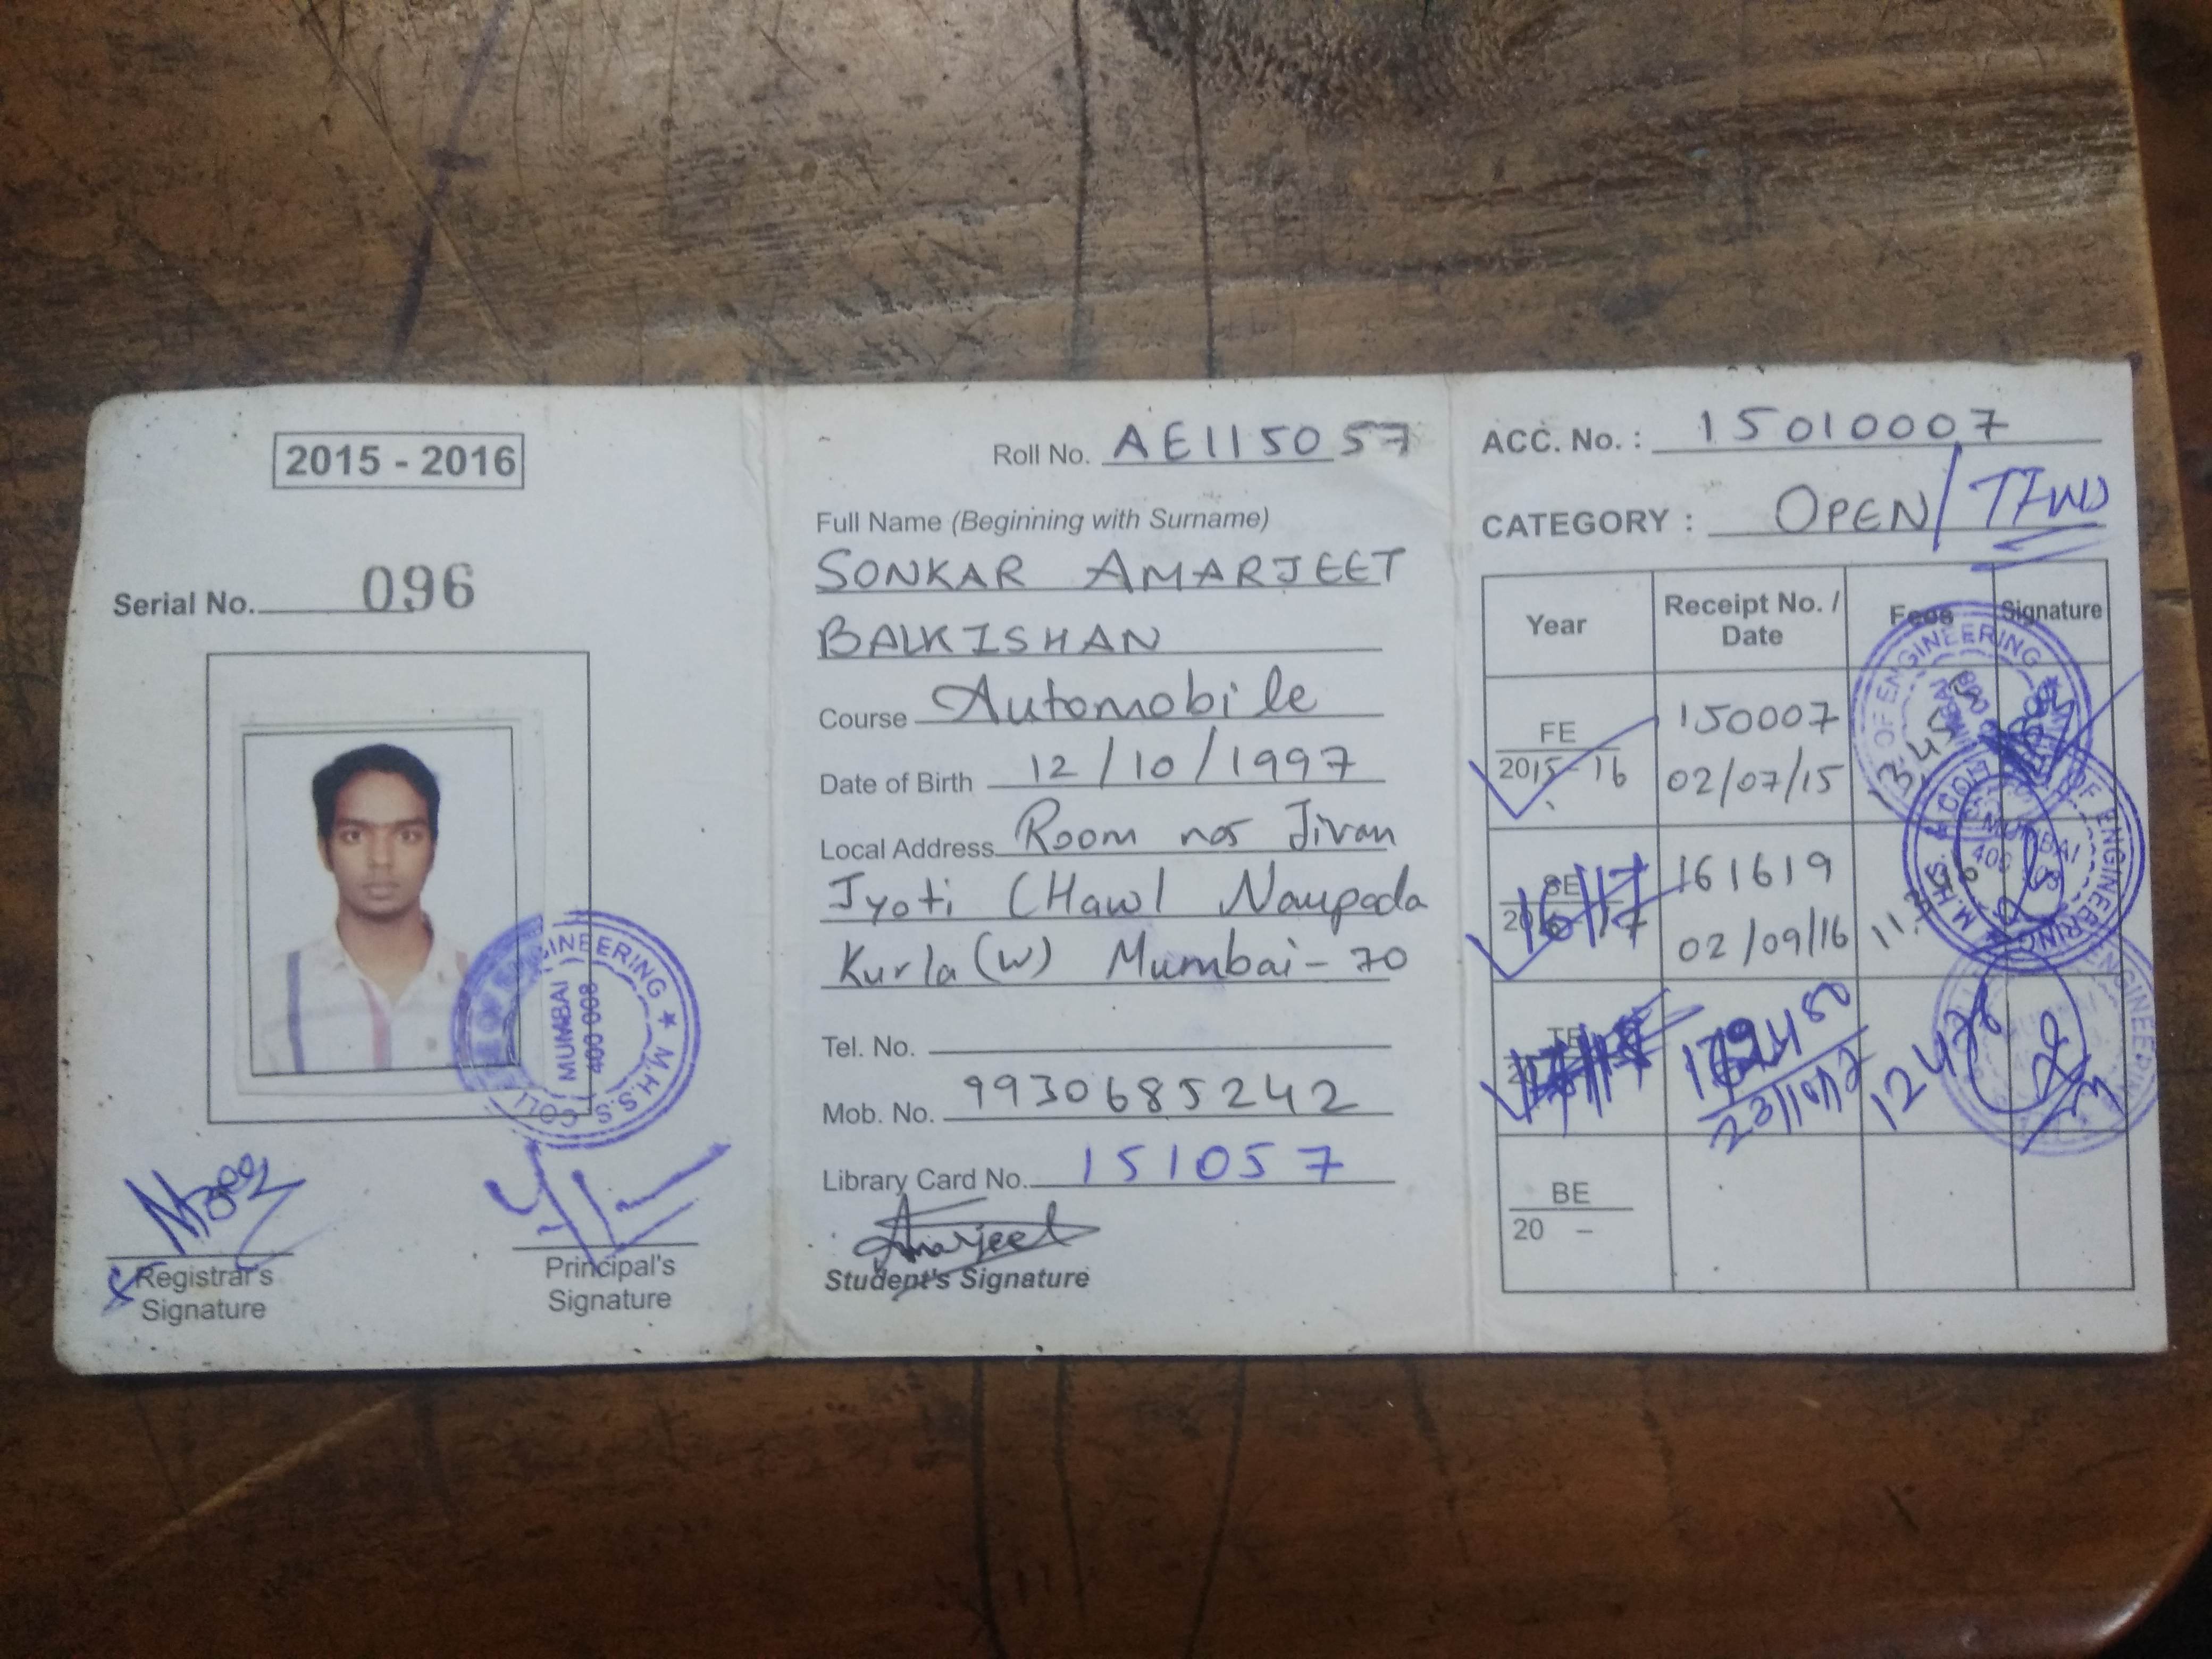 2015 - 2016
Serial No. 096
INEERING ★ M.H.S.S. COLL
MUMBAI
400 008
Registrar's
Signature
Principal's
Signature
Roll No. AE115057
Full Name (Beginning with Surname)
SONKAR AMARJEET
BALKISHAN
Course Automobile
Date of Birth 12/10/1997
Local Address Room no5 Jivan
Jyoti CHawl Naupada
Kurla (W) Mumbai-70
Tel. No.
Mob. No. 9930685242
Library Card No. 151057
Amarjeet
Student's Signature
ACC. No. : 15010007
CATEGORY : OPEN/TFWS
Year Receipt No. / Date Fees Signature
FE 2015-16 150007 02/07/15
SE 2016/17 161619 02/09/16
TE 17/18 23/10/17
BE
20 -
OF ENGINEERING ★
M.H.S.S. COLL OF ENGINEERING
MUMBAI